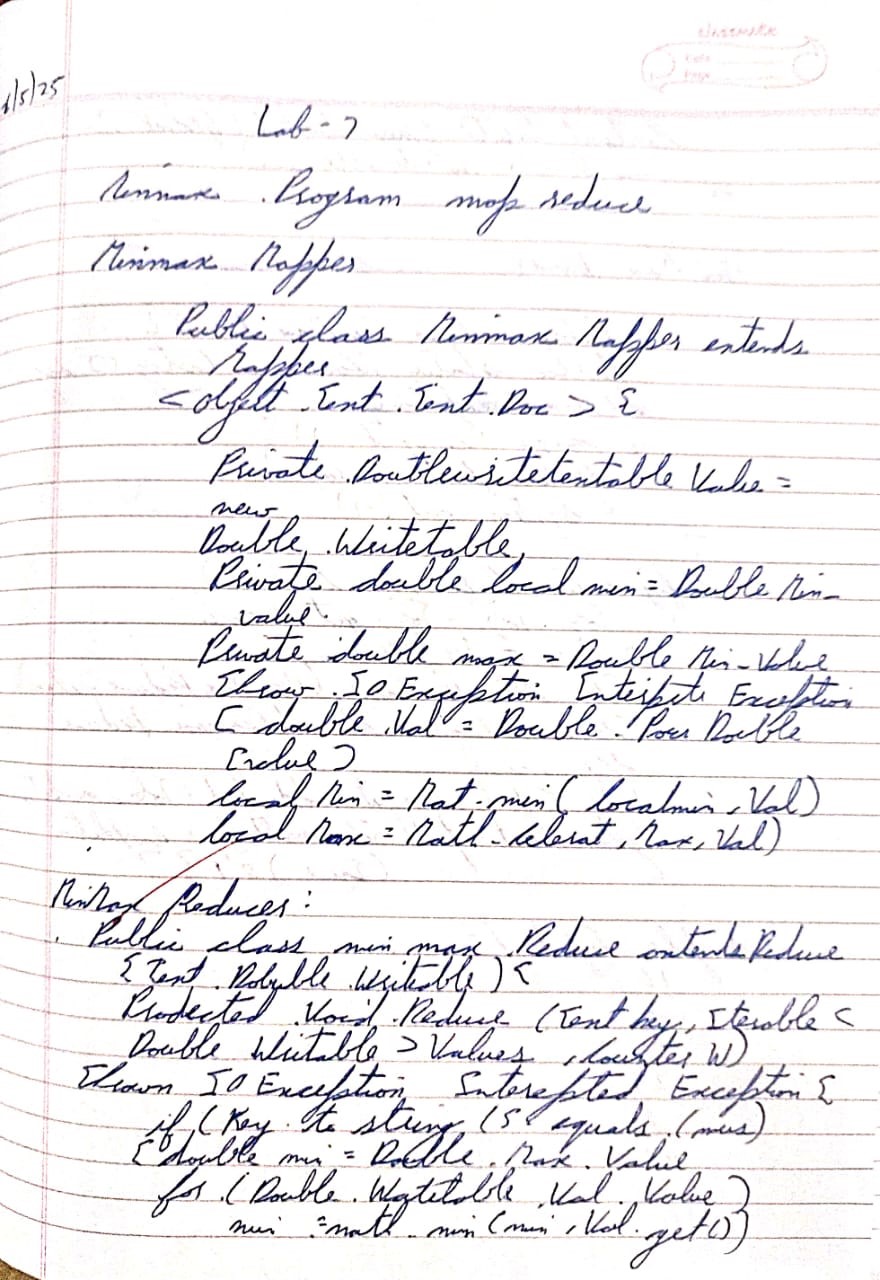 classmate
Date
Page
/5/25
Lab - 7
Minmax . Program map reduce
Minmax Mapper
Public class Minmax Mapper extends
Mapper
< object . Text . Text . Doc > {
Private . Doublewritetextable Value =
new
Double . Writetable,
Private double local min = Double Min-
value.
Private double max = Double Min - Value
Throw . IO Exception Exception
[ double . Val = Double . Double
[value)
local Min = Mat . min ( localmin , Val)
local Max = Math - , Max , Val)
MinMax Reducer :
Public class min max . Reduce extends Reduce
{ Text . Double . Writable ) {
Protected . Void . Reduce (Text key, Iterable <
Double Writable > Values , W)
Thrown IO Exception Exception {
if (Key . to string ( equals . (
{ double min = Double . Max . Value
for . ( Double . . Val . Value )
min = math . min (min , Val . get())